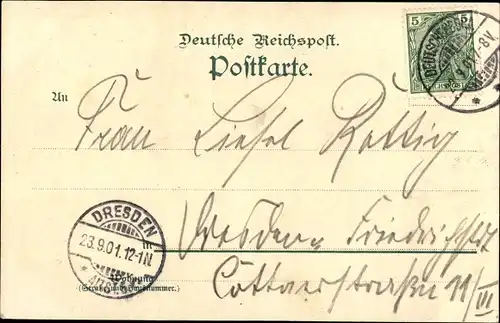 Deutsche Reichspost.
Postkarte.
5 5
An
Frau Liesel Rottig
DRESDEN
23.9.01.12-1N.
in Dresden-Friedrichstadt
Wohnung
(Straße und Hausnummer.)
Cottaerstraße 11/III